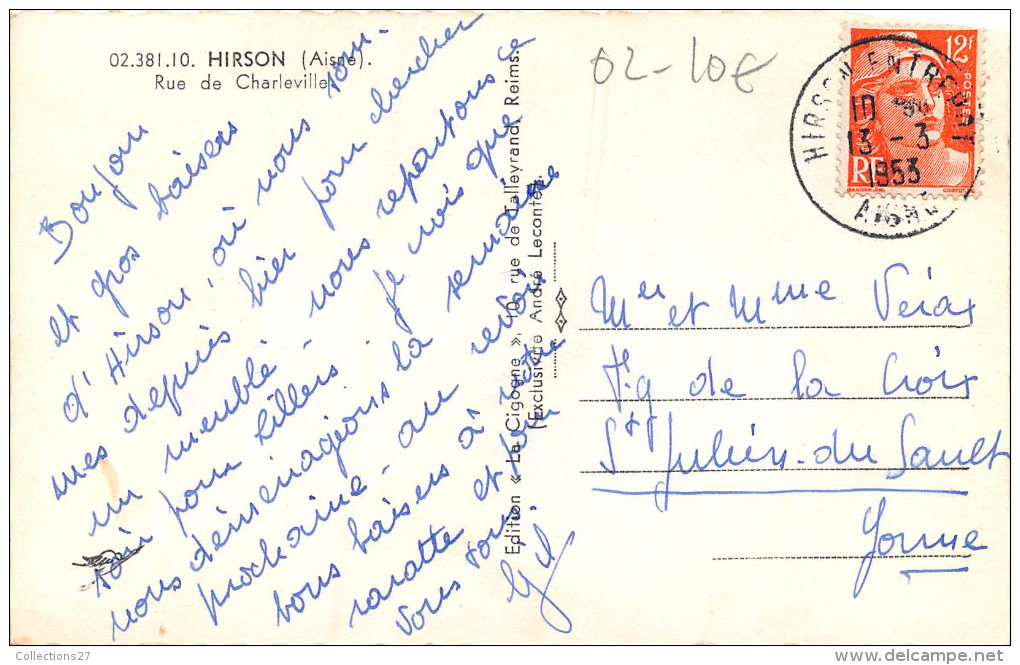 02.381.10. HIRSON (Aisne).
Rue de Charleville
Bonjour
et gros baisers
d'Hirson, où nous som-
mes depuis hier pour chercher
un meublé - nous repartons ce
soir pour Lillers - je crois que
nous déménageons la semaine
prochaine - au revoir
bons baisers à votre
et pour
vous tous.
Gil
Edition « La Cigogne », 10, rue de Talleyrand, Reims.
(Exclusivité André Lecontes).
02-10€
12f
POSTES
RF
GANDON.DEL
CORTOT
HIRSON ENTREPOT
10
13 - 3
1953
AISNE
Mr et Mme
Fg de la Croix
St Julien-du-Sault
Yonne
Collections27